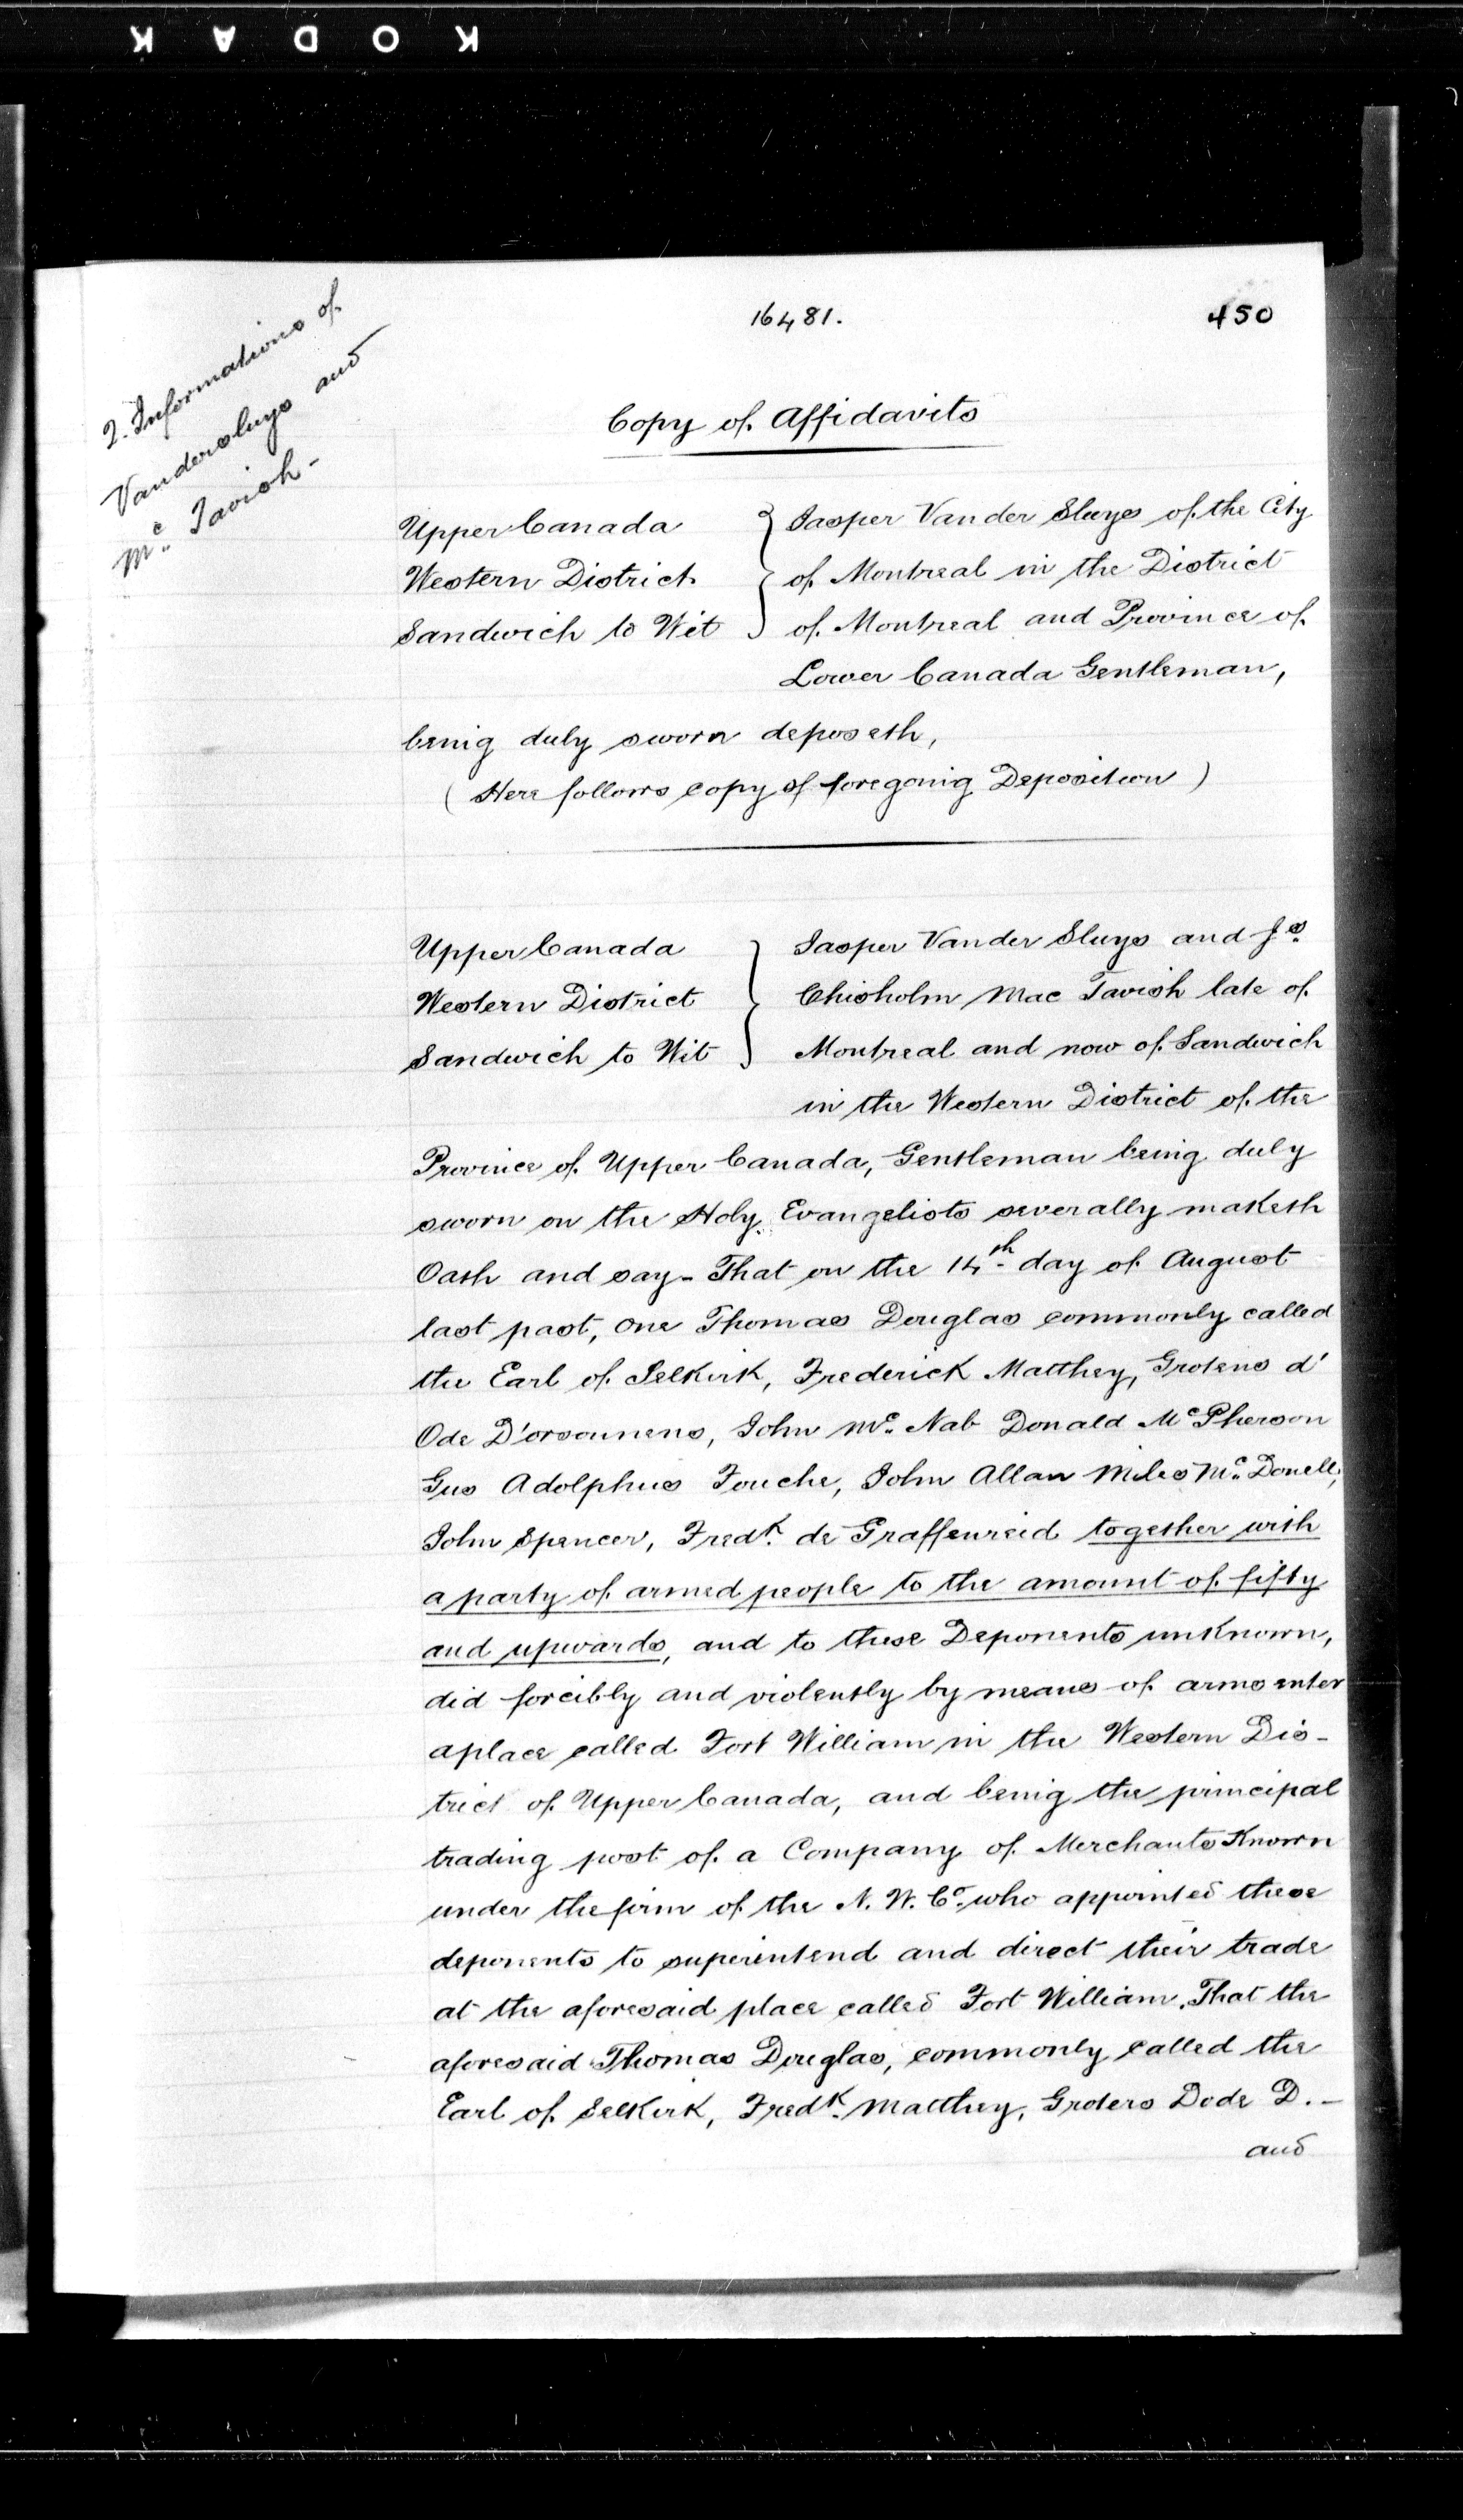 KODAK
16481.
450
2. Informations of
Vandersluys and
Mc. Tavish -
Copy of Affidavits
Upper Canada } Jasper Van der Sluys of the City
Western District } of Montreal in the District
Sandwich to Wit } of Montreal and Province of
Lower Canada Gentleman,
being duly sworn deposeth,
( Here follows copy of foregoing Deposition )
Upper Canada } Jasper Van der Sluys and Js.
Western District } Chisholm Mac Tavish late of
Sandwich to Wit } Montreal and now of Sandwich
in the Western District of the
Province of Upper Canada, Gentleman being duly
sworn on the Holy Evangelists severally maketh
Oath and say - That on the 14th day of August
last past, one Thomas Douglas commonly called
the Earl of Selkirk, Frederick Matthey, Grotens d'
Ode D'orsounens, John Mc. Nab Donald McPherson
Gus Adolphus Fouche, John Allan Miles Mc. Donell,
John Spencer, Fredk. de Graffenreid together with
a party of armed people to the amount of fifty
and upwards, and to these Deponents unknown,
did forcibly and violently by means of arms enter
a place called Fort William in the Western Dis-
trict of Upper Canada, and being the principal
trading post of a Company of Merchants Known
under the firm of the N. W. Co. who appointed these
deponents to superintend and direct their trade
at the aforesaid place called Fort William. That the
aforesaid Thomas Douglas, commonly called the
Earl of Selkirk, Fredk. Matthey, Groters Dode D. -
and